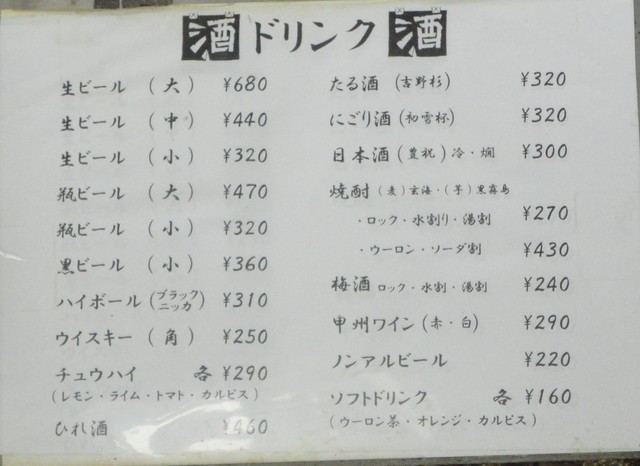 酒 ドリンク 酒
生ビール (大) ¥680
生ビール (中) ¥440
生ビール (小) ¥320
瓶ビール (大) ¥470
瓶ビール (小) ¥320
黒ビール (小) ¥360
ハイボール (ブラックニッカ) ¥310
ウイスキー (角) ¥250
チュウハイ 各 ¥290
(レモン・ライム・トマト・カルピス)
ひれ酒 ¥460
たる酒 (吉野杉) ¥320
にごり酒 (初雪杯) ¥320
日本酒 (豊祝) 冷・燗 ¥300
焼酎 (麦) 玄海・(芋) 黒霧島
・ロック・水割り・湯割 ¥270
・ウーロン・ソーダ割 ¥430
梅酒 ロック・水割・湯割 ¥240
甲州ワイン (赤・白) ¥290
ノンアルビール ¥220
ソフトドリンク 各 ¥160
(ウーロン茶・オレンジ・カルピス)